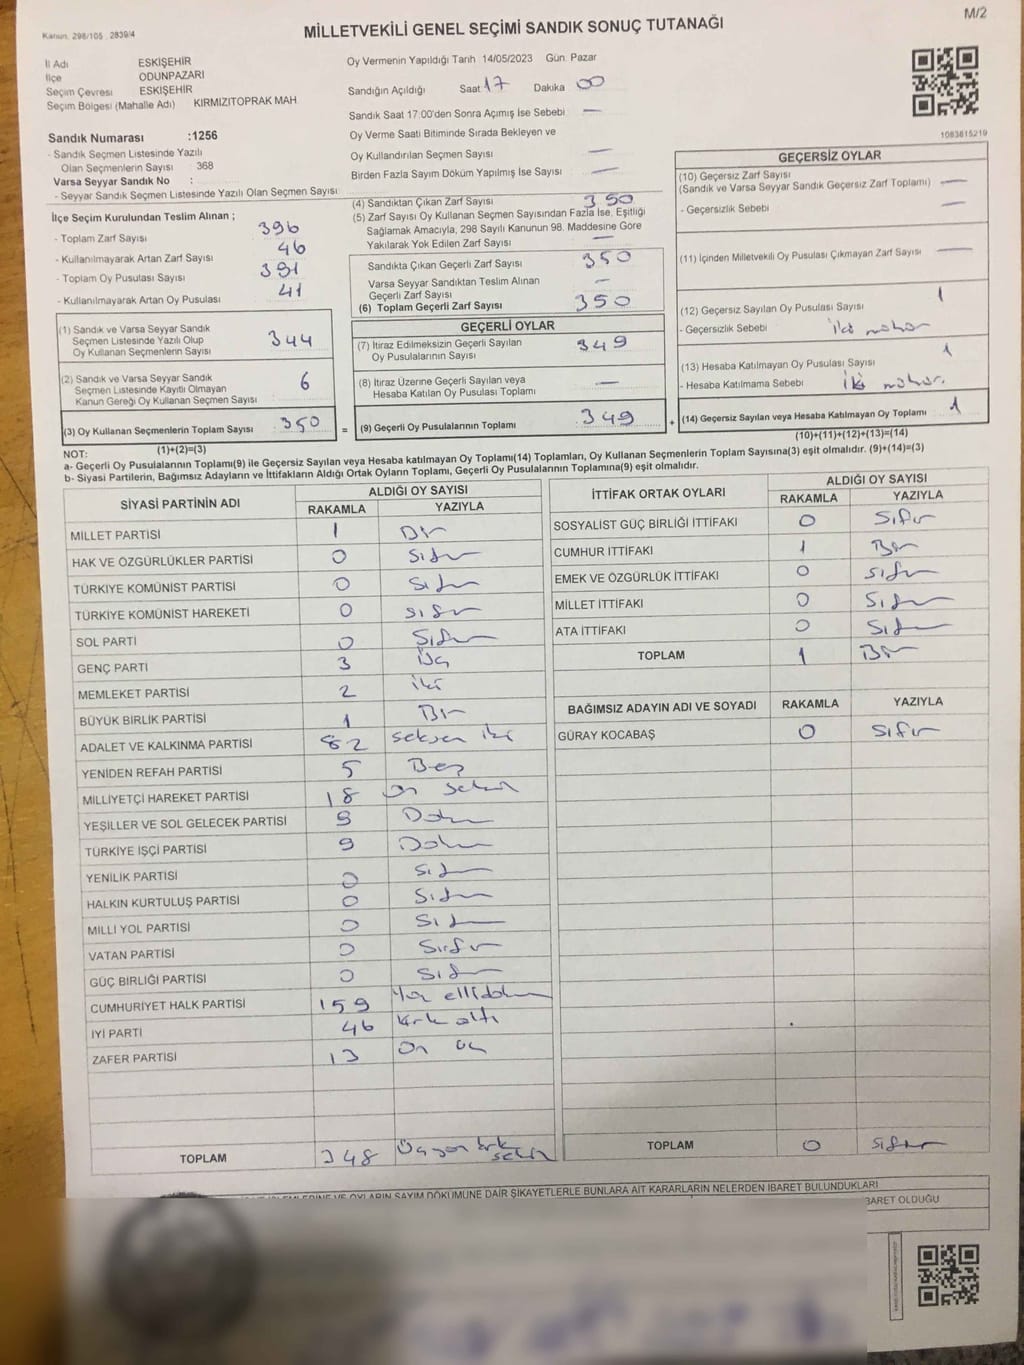 M/2
Kanun. 298/105 2839/4
MİLLETVEKİLİ GENEL SEÇİMİ SANDIK SONUÇ TUTANAĞI
İl Adı ESKİŞEHİR
İlçe ODUNPAZARI
Seçim Çevresi ESKİŞEHİR
Seçim Bölgesi (Mahalle Adı) KIRMIZITOPRAK MAH
Sandık Numarası :1256
- Sandık Seçmen Listesinde Yazılı
Olan Seçmenlerin Sayısı : 368
Varsa Seyyar Sandık No :
- Seyyar Sandık Seçmen Listesinde Yazılı Olan Seçmen Sayısı:
Oy Vermenin Yapıldığı Tarih 14/05/2023 Gün. Pazar
Sandığın Açıldığı Saat 17 Dakika 00
Sandık Saat 17:00'den Sonra Açımış İse Sebebi —
Oy Verme Saati Bitiminde Sırada Bekleyen ve
Oy Kullandırılan Seçmen Sayısı —
Birden Fazla Sayım Döküm Yapılmış İse Sayısı —
1083615219
İlçe Seçim Kurulundan Teslim Alınan ;
- Toplam Zarf Sayısı 396
- Kullanılmayarak Artan Zarf Sayısı 46
- Toplam Oy Pusulası Sayısı 391
- Kullanılmayarak Artan Oy Pusulası 41
(1) Sandık ve Varsa Seyyar Sandık
Seçmen Listesinde Yazılı Olup
Oy Kullanan Seçmenlerin Sayısı 344
(2) Sandık ve Varsa Seyyar Sandık
Seçmen Listesinde Kayıtlı Olmayan
Kanun Gereği Oy Kullanan Seçmen Sayısı 6
(3) Oy Kullanan Seçmenlerin Toplam Sayısı 350
(1)+(2)=(3)
(4) Sandıktan Çıkan Zarf Sayısı 350
(5) Zarf Sayısı Oy Kullanan Seçmen Sayısından Fazla İse, Eşitliği
Sağlamak Amacıyla, 298 Sayılı Kanunun 98. Maddesine Göre
Yakılarak Yok Edilen Zarf Sayısı —
Sandıkta Çıkan Geçerli Zarf Sayısı 350
Varsa Seyyar Sandıktan Teslim Alınan
Geçerli Zarf Sayısı —
(6) Toplam Geçerli Zarf Sayısı 350
GEÇERLİ OYLAR
(7) İtiraz Edilmeksizin Geçerli Sayılan
Oy Pusulalarının Sayısı 349
(8) İtiraz Üzerine Geçerli Sayılan veya
Hesaba Katılan Oy Pusulası Toplamı —
= (9) Geçerli Oy Pusulalarının Toplamı 349
GEÇERSİZ OYLAR
(10) Geçersiz Zarf Sayısı
(Sandık ve Varsa Seyyar Sandık Geçersiz Zarf Toplamı) —
- Geçersizlik Sebebi —
(11) İçinden Milletvekili Oy Pusulası Çıkmayan Zarf Sayısı —
(12) Geçersiz Sayılan Oy Pusulası Sayısı 1
- Geçersizlik Sebebi İki mühür
(13) Hesaba Katılmayan Oy Pusulası Sayısı 1
- Hesaba Katılmama Sebebi İki mühür.
+ (14) Geçersiz Sayılan veya Hesaba Katılmayan Oy Toplamı 1
(10)+(11)+(12)+(13)=(14)
NOT:
a- Geçerli Oy Pusulalarının Toplamı(9) ile Geçersiz Sayılan veya Hesaba katılmayan Oy Toplamı(14) Toplamları, Oy Kullanan Seçmenlerin Toplam Sayısına(3) eşit olmalıdır. (9)+(14)=(3)
b- Siyasi Partilerin, Bağımsız Adayların ve İttifakların Aldığı Ortak Oyların Toplamı, Geçerli Oy Pusulalarının Toplamına(9) eşit olmalıdır.
SİYASİ PARTİNİN ADI ALDIĞI OY SAYISI
RAKAMLA YAZIYLA
MİLLET PARTİSİ 1 Bir
HAK VE ÖZGÜRLÜKLER PARTİSİ 0 Sıfır
TÜRKİYE KOMÜNİST PARTİSİ 0 Sıfır
TÜRKİYE KOMÜNİST HAREKETİ 0 Sıfır
SOL PARTİ 0 Sıfır
GENÇ PARTİ 3 Üç
MEMLEKET PARTİSİ 2 iki
BÜYÜK BİRLİK PARTİSİ 1 Bir
ADALET VE KALKINMA PARTİSİ 82 Seksen iki
YENİDEN REFAH PARTİSİ 5 Beş
MİLLİYETÇİ HAREKET PARTİSİ 18 On sekiz
YEŞİLLER VE SOL GELECEK PARTİSİ 9 Dokuz
TÜRKİYE İŞÇİ PARTİSİ 9 Dokuz
YENİLİK PARTİSİ 0 Sıfır
HALKIN KURTULUŞ PARTİSİ 0 Sıfır
MİLLİ YOL PARTİSİ 0 Sıfır
VATAN PARTİSİ 0 Sıfır
GÜÇ BİRLİĞİ PARTİSİ 0 Sıfır
CUMHURİYET HALK PARTİSİ 159 Yüz ellidokuz
İYİ PARTİ 46 Kırk altı
ZAFER PARTİSİ 13 On üç
TOPLAM 348 Üçyüz kırk sekiz
İTTİFAK ORTAK OYLARI ALDIĞI OY SAYISI
RAKAMLA YAZIYLA
SOSYALİST GÜÇ BİRLİĞİ İTTİFAKI 0 Sıfır
CUMHUR İTTİFAKI 1 Bir
EMEK VE ÖZGÜRLÜK İTTİFAKI 0 Sıfır
MİLLET İTTİFAKI 0 Sıfır
ATA İTTİFAKI 0 Sıfır
TOPLAM 1 Bir
BAĞIMSIZ ADAYIN ADI VE SOYADI RAKAMLA YAZIYLA
GÜRAY KOCABAŞ 0 Sıfır
TOPLAM 0 Sıfır
OYLARIN SAYIM DÖKÜMÜNE DAİR ŞİKAYETLERLE BUNLARA AİT KARARLARIN NELERDEN İBARET BULUNDUKLARI
OLDUĞU